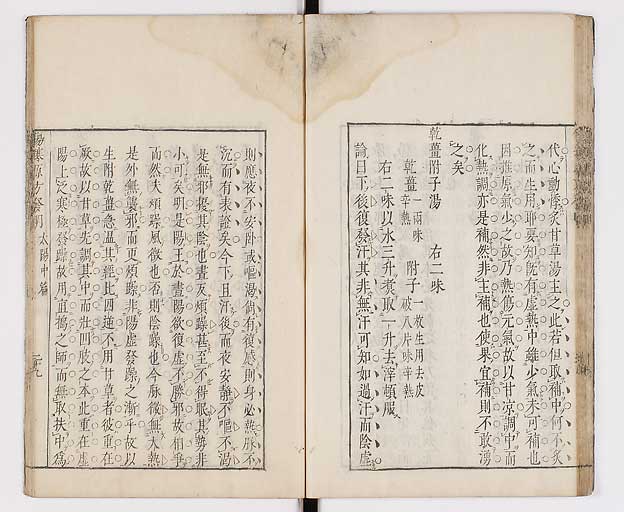 代心動悸炙甘草湯主之此若但取補中何不炙
之而生用耶要知既有虛熱中雖少氣未可補也
因推原氣少之故乃熱傷元氣故以甘涼調中而
化熱調亦是補然非主補也使果宜補則不敢湧
之矣
乾薑附子湯 右二味
乾薑一兩味辛熱 附子一枚生用去皮破八片味辛熱
右二味以水三升煮取一升去滓頓服
論曰下後復發汗其非無汗可知如過汗而陰虛
則應夜不安卧或嘔渴倘有復感則身必熱脉不
沉而有表證矣今下且汗後而夜安靜不嘔不渴
是無邪擾其陰也晝反煩躁甚至不得眠其勢非
小可矣明是陽王於晝陽欲復虛不勝邪故相爭
而然夫煩躁風徵也否則陰躁也今脉微無大熱
是外無襲邪而更煩躁非陽虛發躁之漸乎故以
生附乾薑急溫其經比四逆不用甘草者彼重在
厥故以甘草先調其中而壯四肢之本此重在虛
陽上泛寒極發躁故用直搗之師而無取扶中為
太陽中篇